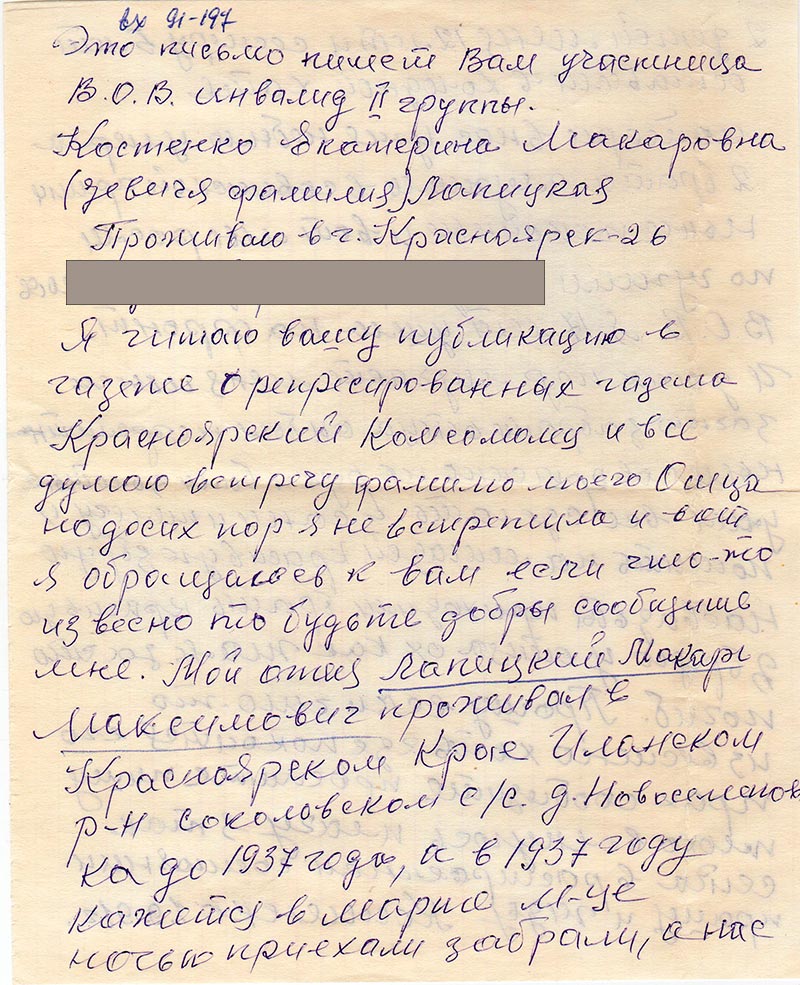 вх 91-197
Это письмо пишет Вам участница
В.О.В. инвалид II группы.
Костенко Екатерина Макаровна
(девичя фамилия) Лапицкая
Проживаю в г. Красноярск-26
Я читаю вашу публикацию в
газете о репресированных газета
Красноярский Комсомолец и все
думаю встречу фамилю моего Отца
но досих пор я не встретила и вот
я обращаюсь к вам если что-то
из весно то будьте добры сообщите
мне. Мой отец Лапицкий Макар
Максимович проживал в
Красноярском Крае Иланском
р-н соколовском с/с. д. Новосеменов
ка до 1937 года, а в 1937 году
кажется в Марте м-це
ночью приехали забрали, а нас